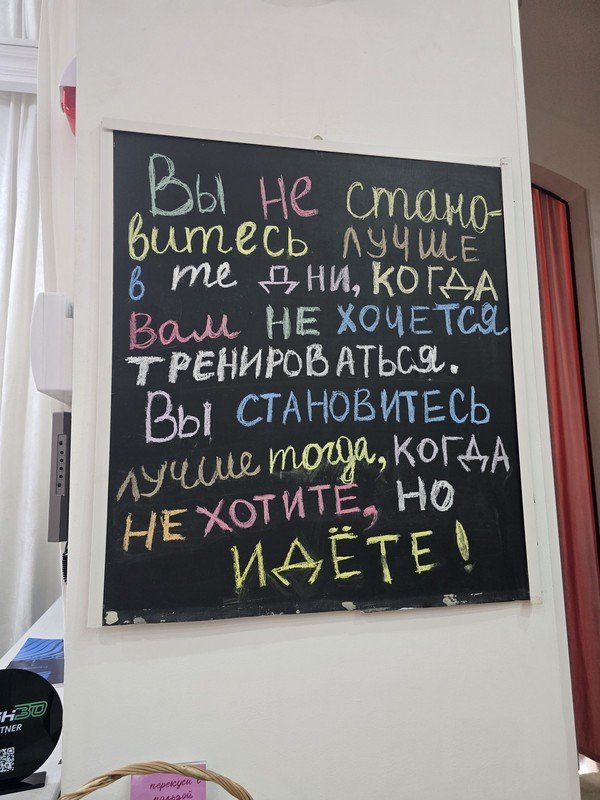 Вы не стано-
витесь лучше
в те дни, когда
вам не хочется
тренироваться.
Вы становитесь
лучше тогда, когда
не хотите, но
идёте!
перекуси с
пользой